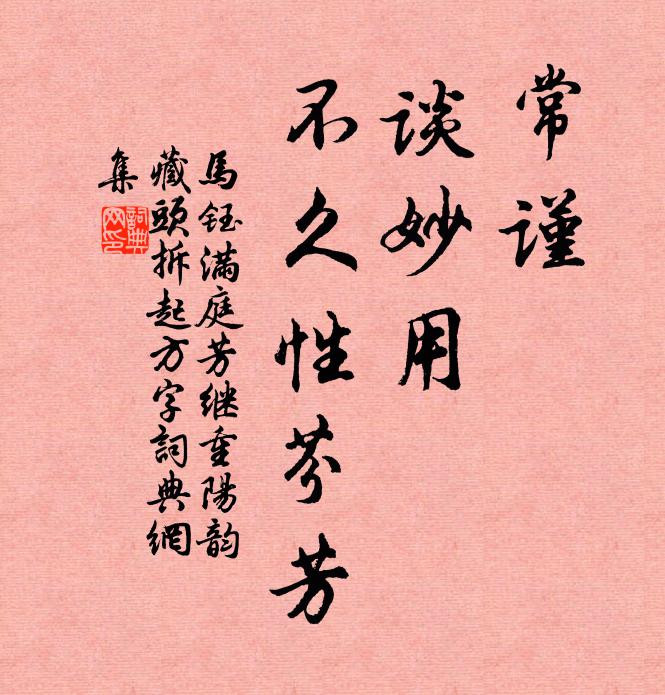 常謹
談妙用
不久性芬芳
馬鈺滿庭芳继重陽韵
藏頭拆起方字詞典網
集
詞典网印